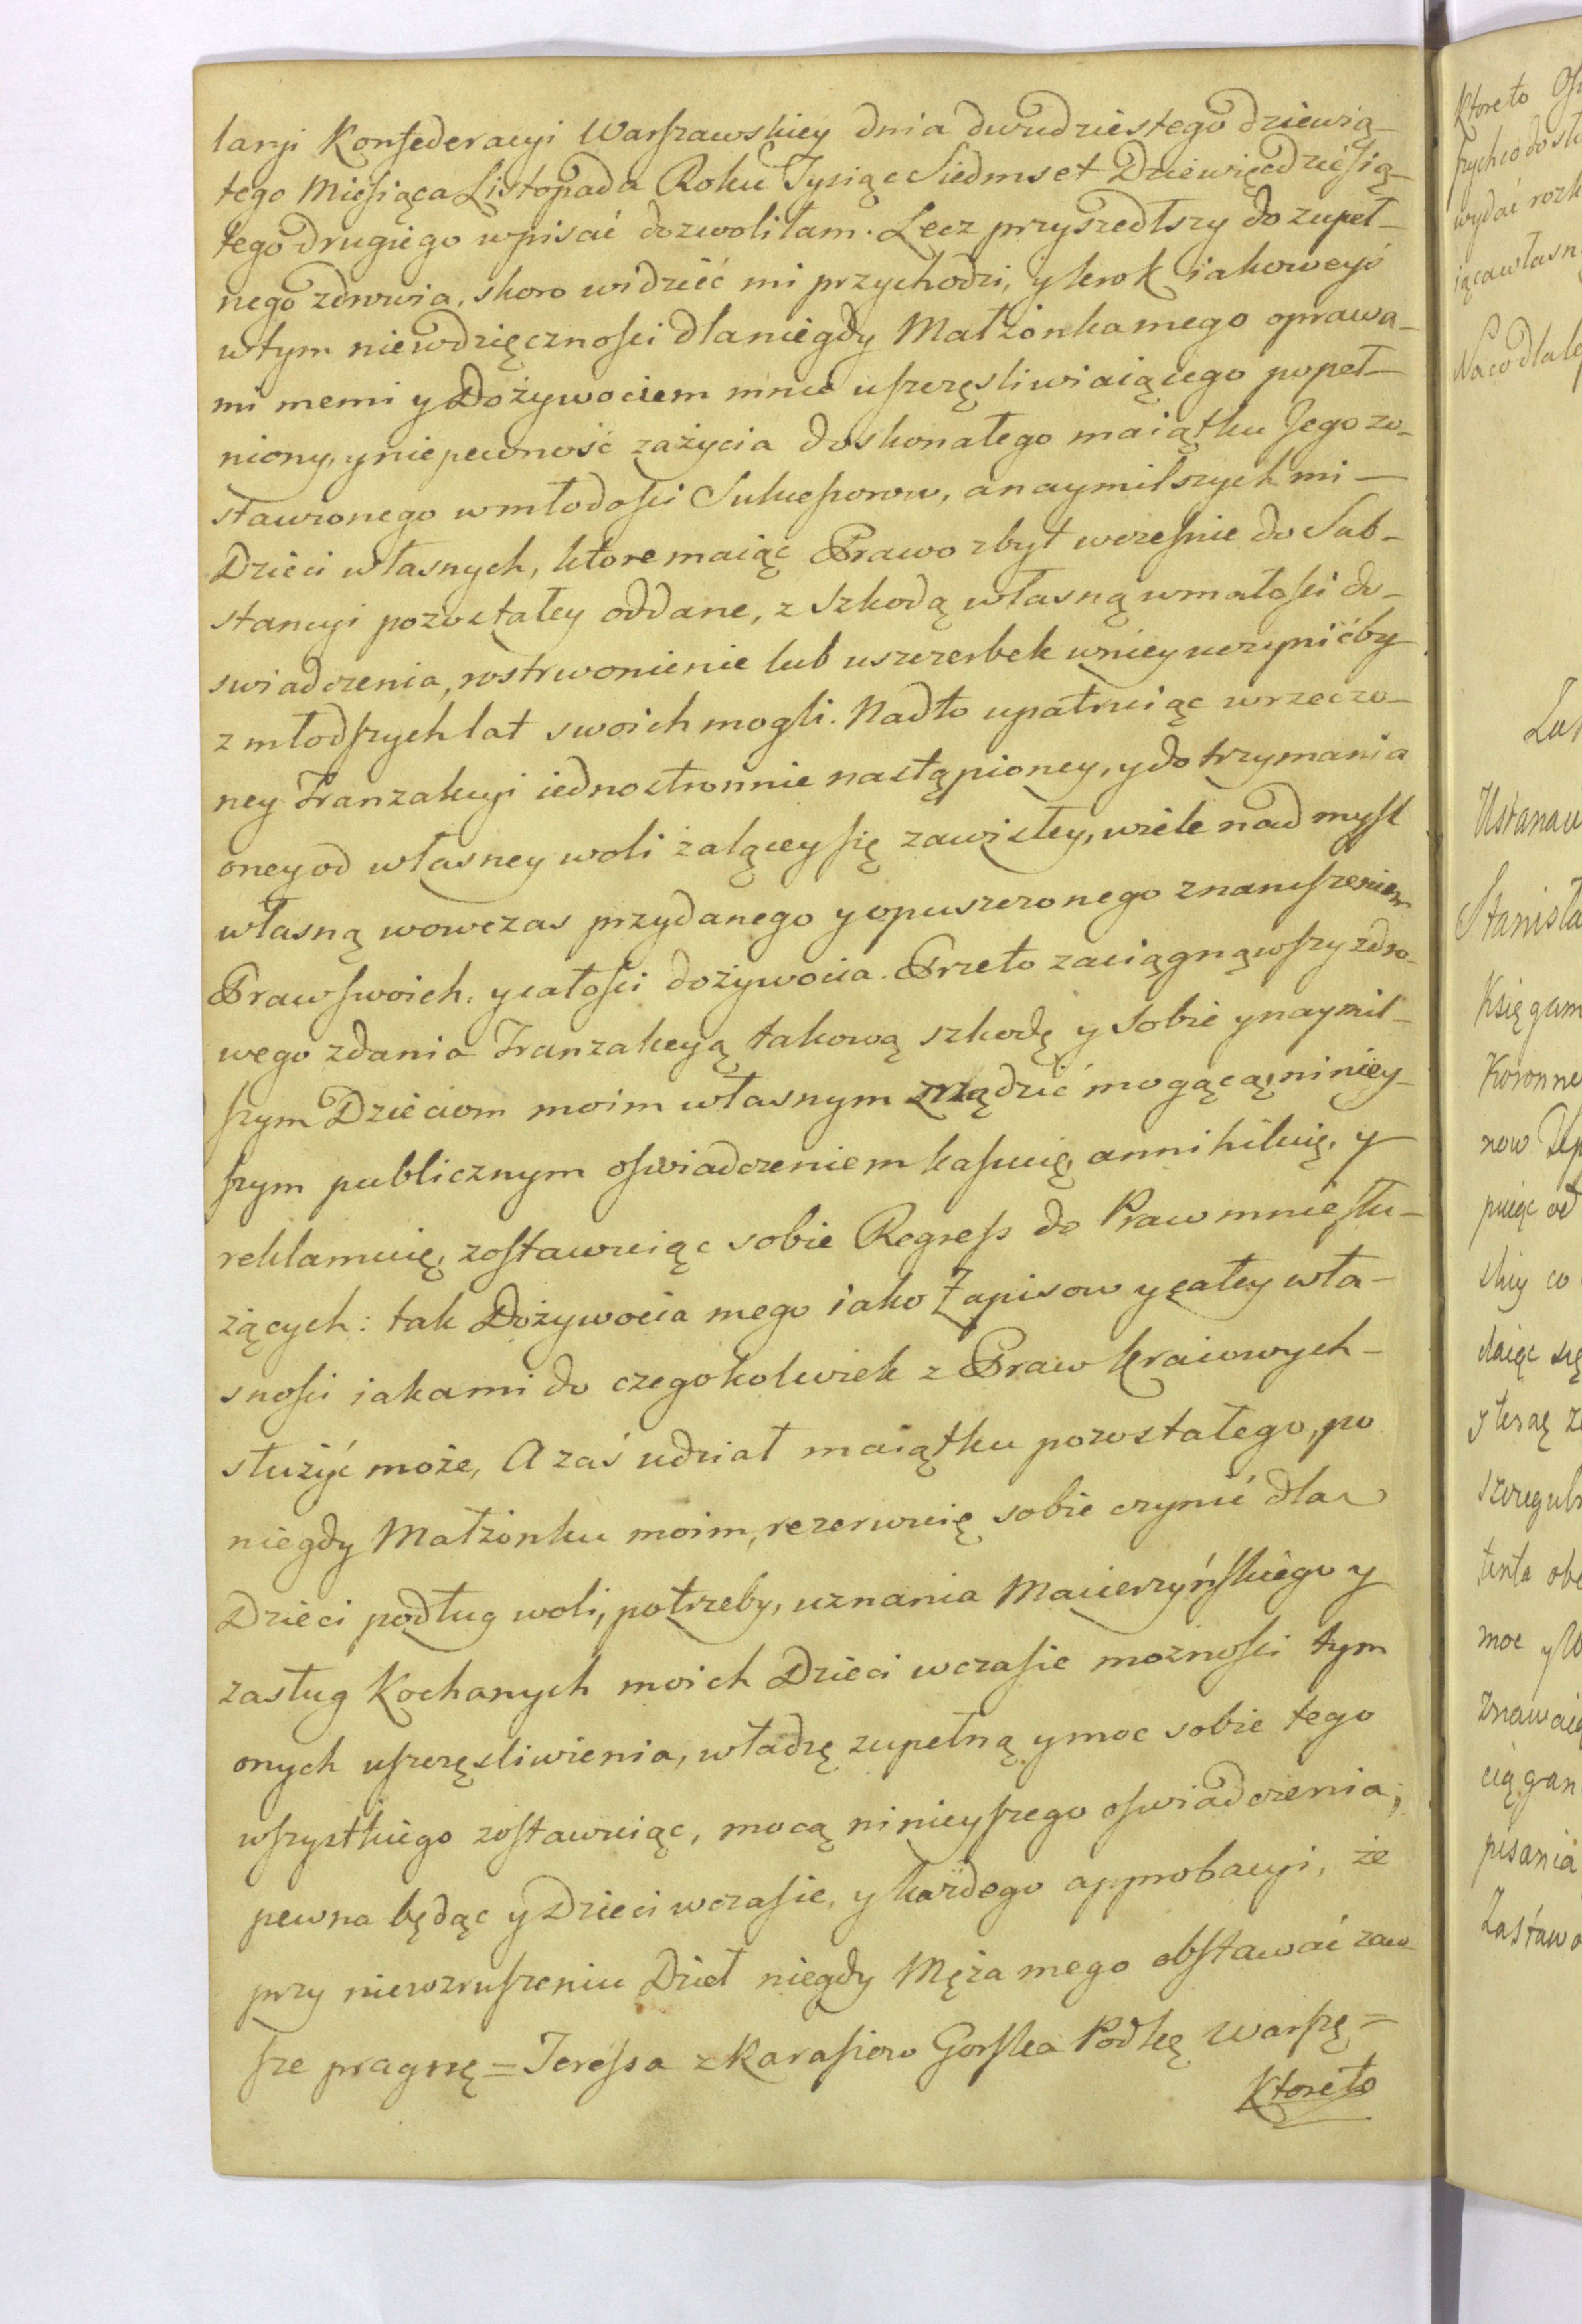 larji Konfederacyi Warszawskiey dnia dwudziestego dziewią-
tego Miesiąca Listopada Roku Tysiąc Siedmset Dziewięcdziesią-
tego drugiego wpisać dozwoliłam. Lecz przyszedłszy do zupeł-
nego zdrowia, skoro widzieć mi przychodzi, y krok iakoweyś
w tym niewdzięcznosci dla niegdy Małżonka mego oprawa-
mi memi y Dożywociem mnie uszczęsliwiaiącego popeł-
niony, y niepewność zażycia doskonałego maiątku Jego zo-
stawionego w młodości Sukcessorow, a naymilszych mi -
Dzieci własnych, ktore maiąc Prawo zbyt wczesnie do Sub-
stancyi pozostałey oddane, z szkodą własną w małości do-
swiadczenia, rostrwonienie lub uszczerbek w niey uczynićby
z młodszych lat swoich mogli. Nadto upatruiąc w rzeczo-
ney Tranzakcyi iednostronnie nastąpioney, y do trzymania
oney od własney woli żalącey się zawisłey, wiele nad mysl
własną wowczas przydanego y opuszczonego z naruszeniem
Praw swoich, y całości dożywocia. Przeto zaciągnąwszy zdro-
wego zdania Tranzakcyą takową szkodę y sobie y naymil-
szym Dzieciom moim własnym zrządzić mogącą niniey-
szym publicznym oswiadczeniem kassuię, annihiluię, y
reklamuię, zostawuiąc sobie Regress do Praw mnie słu-
żących: tak Dożywocia mego iako Zapisow y całey wła-
sności iakami do czegokolwiek z Praw kraiowych -
służyć może, A zaś udział maiątku pozostałego, po
niegdy Małżonku moim, rezerwuię sobie czynić dla
Dzieci podług woli, potrzeby, uznania Macierzyńskiego y
zasług Kochanych moich Dzieci w czasie możności tym
onych uszczęsliwienia, władzę zupełną y moc sobie tego
wszystkiego zostawuiąc, mocą ninieyszego oswiadczenia;
pewna będąc y Dzieci w czasie, y każdego approbacyi, że
przy niewzruszeniu Dzieł niegdy Męża mego obstawać zaw-
sze pragnę = Teressa z Karasiow Gorska Podkę Warszę =
Ktoreto